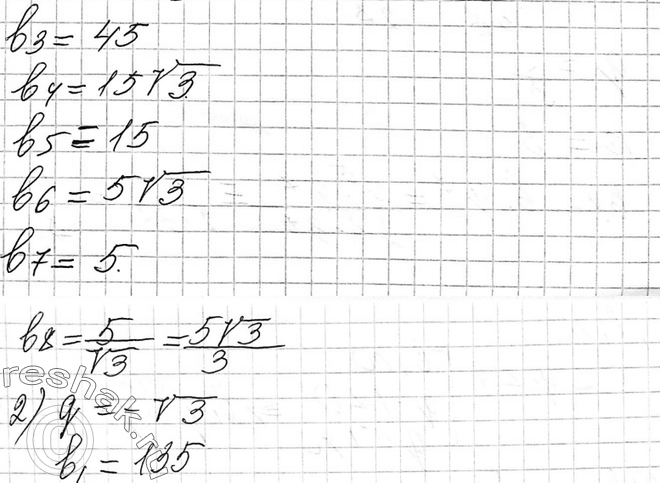 b3 = 45
b4 = 15√3
b5 = 15
b6 = 5√3
b7 = 5.
b8 = 5/√3 = 5√3/3
2) q = -√3
b1 = 135
reshak.ru